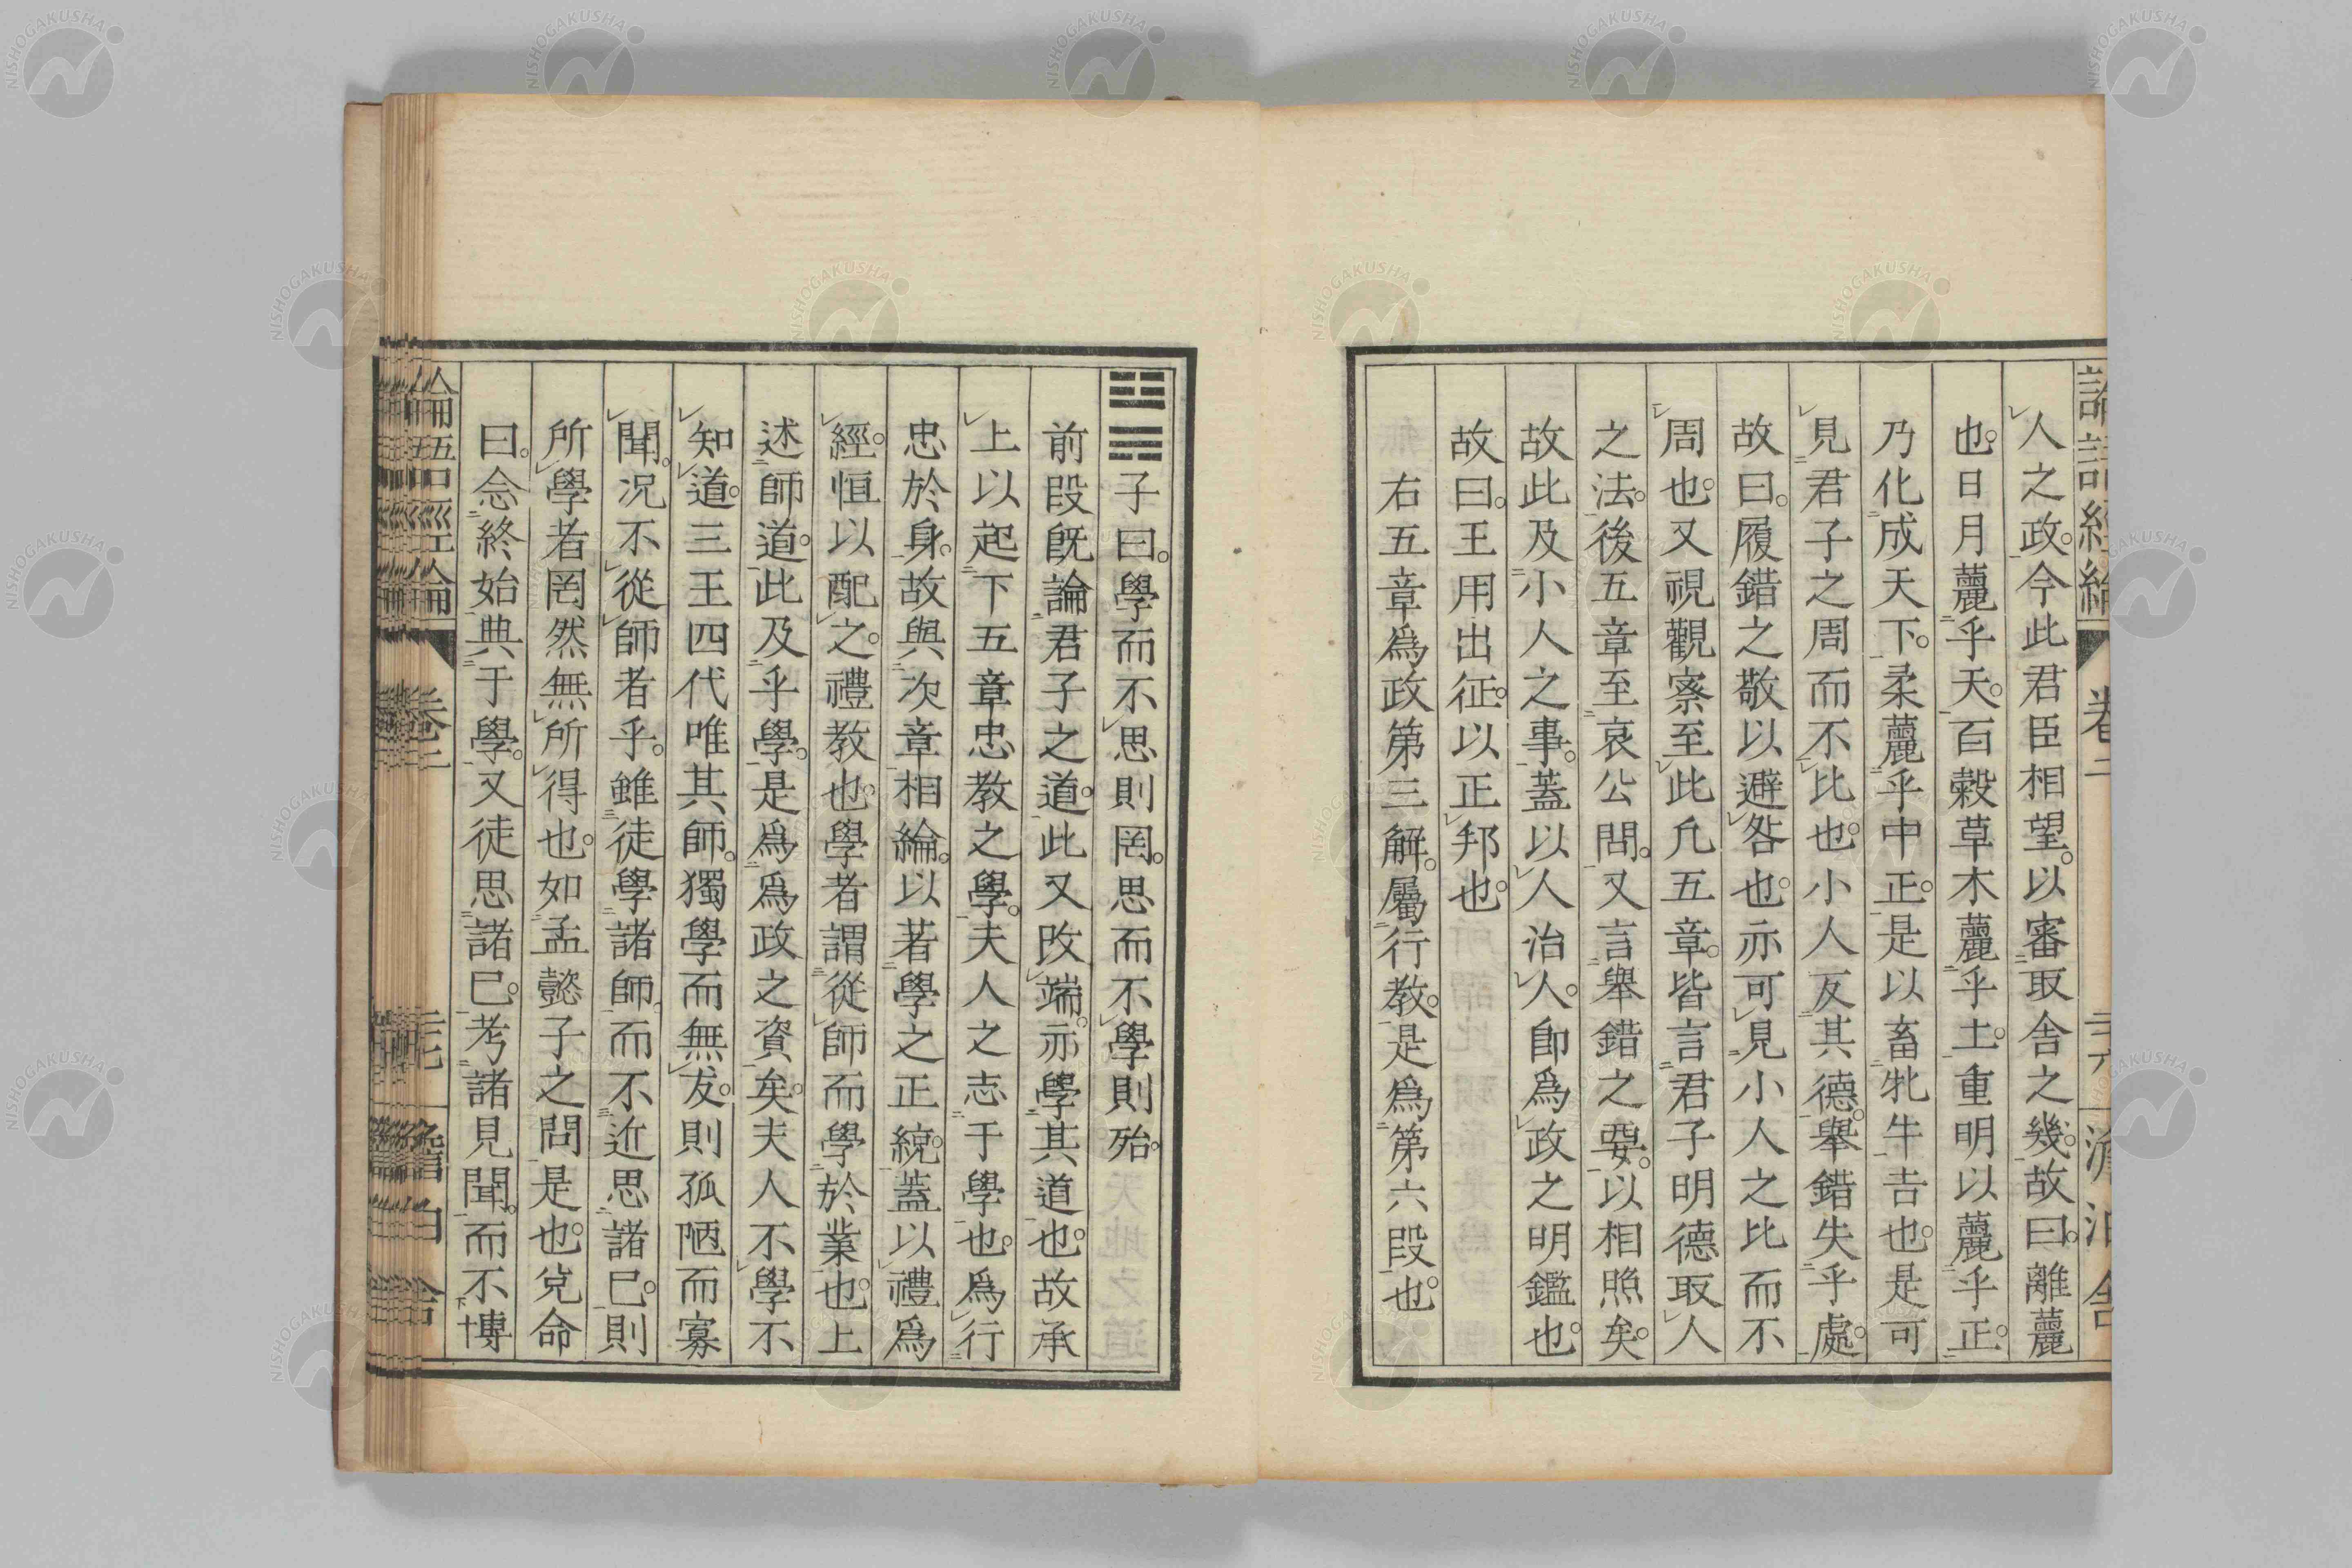 人之政。今此君臣相望。以審取舍之幾。故曰。離麗
也。日月麗乎天。百穀草木麗乎土。重明以麗乎正。
乃化成天下。柔麗乎中正。是以畜牝牛吉也。是可
見君子之周而不比也。小人反其德。舉錯失乎處。
故曰。履錯之敬以避咎也。亦可見小人之比而不
周也。又視觀察至此凡五章。皆言君子明德取人
之法。後五章至哀公問。又言舉錯之要。以相照矣。
故此及小人之事。蓋以人治人。即爲政之明鑑也。
故曰。王用出征。以正邦也。
右五章爲政第三解。屬行教。是爲第六段也。
子曰。學而不思則罔。思而不學則殆。
前段既論君子之道。此又改端。亦學其道也。故承
上以起下五章忠教之學。夫人之志于學也。爲行
忠於身。故與次章相綸。以著學之正統。蓋以禮爲
經。恒以配之。禮教也。學者謂從師而學於業也。上
述師道。此及乎學。是爲爲政之資矣。夫人不學不
知道。三王四代唯其師。獨學而無友。則孤陋而寡
聞。況不從師者乎。雖徒學諸師。而不近思諸已。則
所學者罔然無所得也。如孟懿子之問是也。兌命
曰。念終始典于學。又徒思諸已。考諸見聞。而不博
論語經綸 卷二